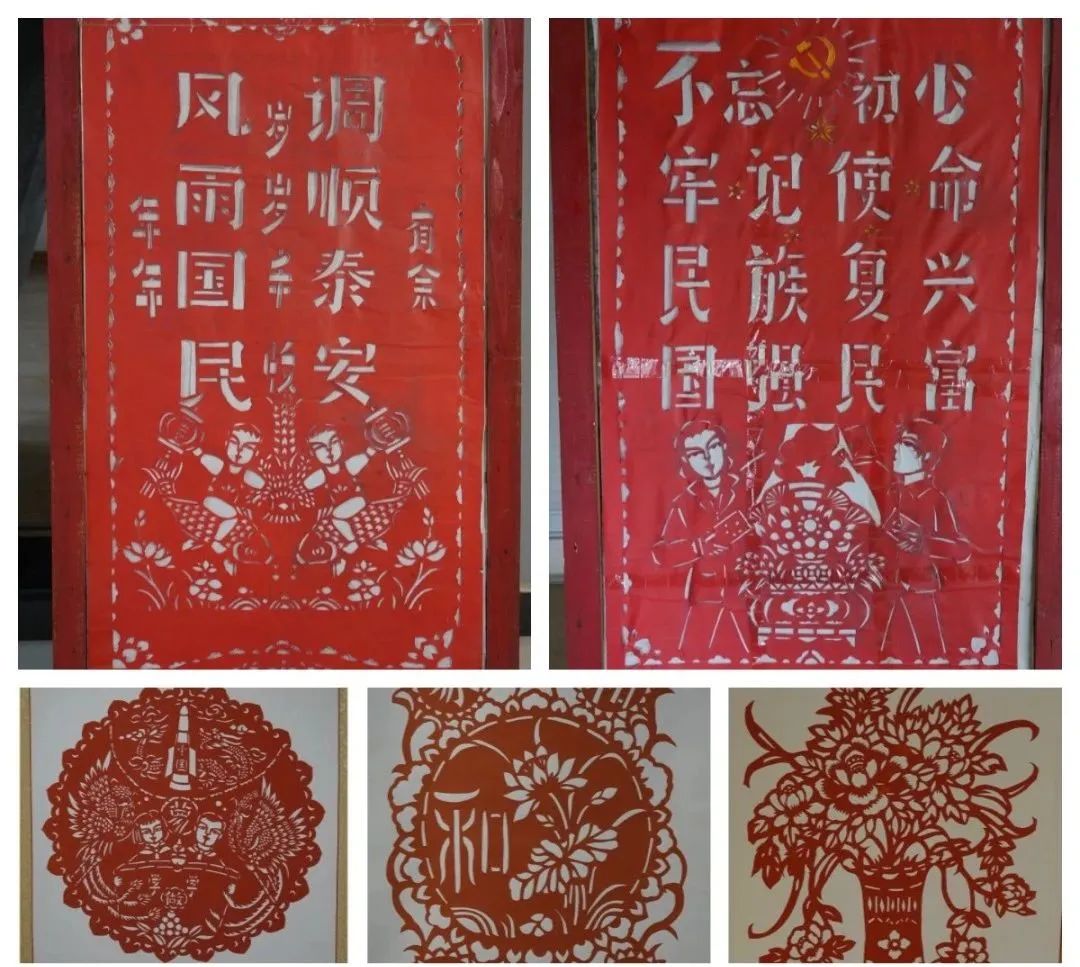 风调雨顺
国泰民安
岁岁
年年有余
不忘初心
牢记使命
民族复兴
国强民富
和